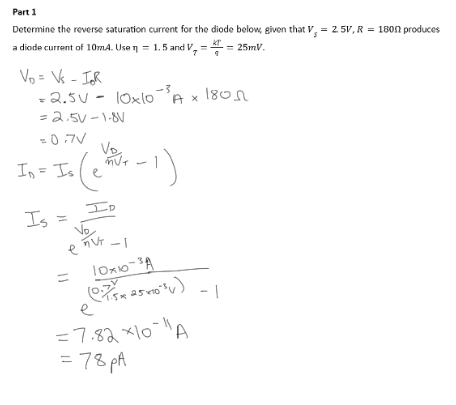 Part 1
Determine the reverse saturation current for the diode below, given that V_s = 2.5V, R = 180Ω produces
a diode current of 10mA. Use η = 1.5 and V_T = kT/q = 25mV.
V_D = V_s - I_D R
= 2.5V - 10x10^-3 A x 180Ω
= 2.5V - 1.8V
= 0.7V
I_D = I_s (e^(V_D/ηV_T) - 1)
I_s = I_D / (e^(V_D/ηV_T) - 1)
= 10x10^-3 A / (e^(0.7V/1.5x25x10^-3 V) - 1)
= 7.82 x10^-11 A
= 78 pA